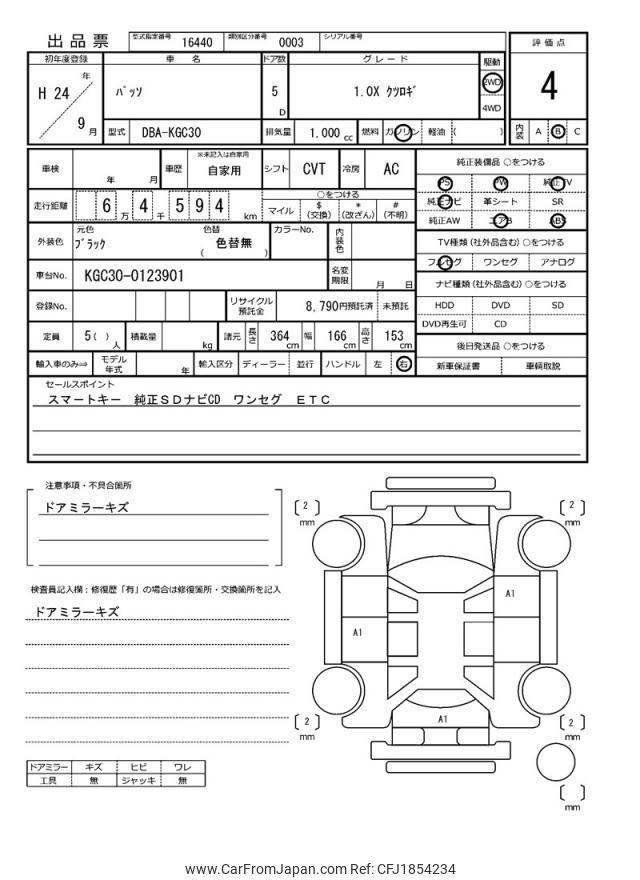 出品票
型式指定番号 16440 類別区分番号 0003 シリアル番号
評価点
4
内装 A B C
初年度登録 車名 ドア数 グレード 駆動
H 24 年 9 月
パッソ 5 D 1.0X クツロギ 2WD 4WD
型式 DBA-KGC30 排気量 1,000 cc 燃料 ガソリン 軽油 ( )
車検 年 月 車歴 ※未記入は自家用 自家用 シフト CVT 冷房 AC
走行距離 6 万 4 千 5 9 4 km
○をつける
マイル $ (交換) * (改ざん) # (不明)
外装色 元色 ブラック 色替 色替無 ( ) カラーNo. 内装色
車台No. KGC30-0123901 名変期限 月 日
登録No. リサイクル預託金 8,790円預託済 未預託
定員 5( ) 人 積載量 kg 諸元 長さ 364 cm 幅 166 cm 高さ 153 cm
輸入車のみ⇒ モデル年式 年 輸入区分 ディーラー 並行 ハンドル 左 右
純正装備品 ○をつける
PS PW 純正TV
純正ナビ 革シート SR
純正AW エアB ABS
TV種類 (社外品含む) ○をつける
フルセグ ワンセグ アナログ
ナビ種類 (社外品含む) ○をつける
HDD DVD SD
DVD再生可 CD
後日発送品 ○をつける
新車保証書 車輌取説
セールスポイント
スマートキー 純正SDナビCD ワンセグ ETC
注意事項・不具合箇所
ドアミラーキズ
検査員記入欄：修復歴「有」の場合は修復箇所・交換箇所を記入
ドアミラーキズ
ドアミラー キズ ヒビ ワレ
工具 無 ジャッキ 無
2 mm
2 mm
A1
A1
A1
2 mm
2 mm
mm
www.CarFromJapan.com Ref: CFJ1854234